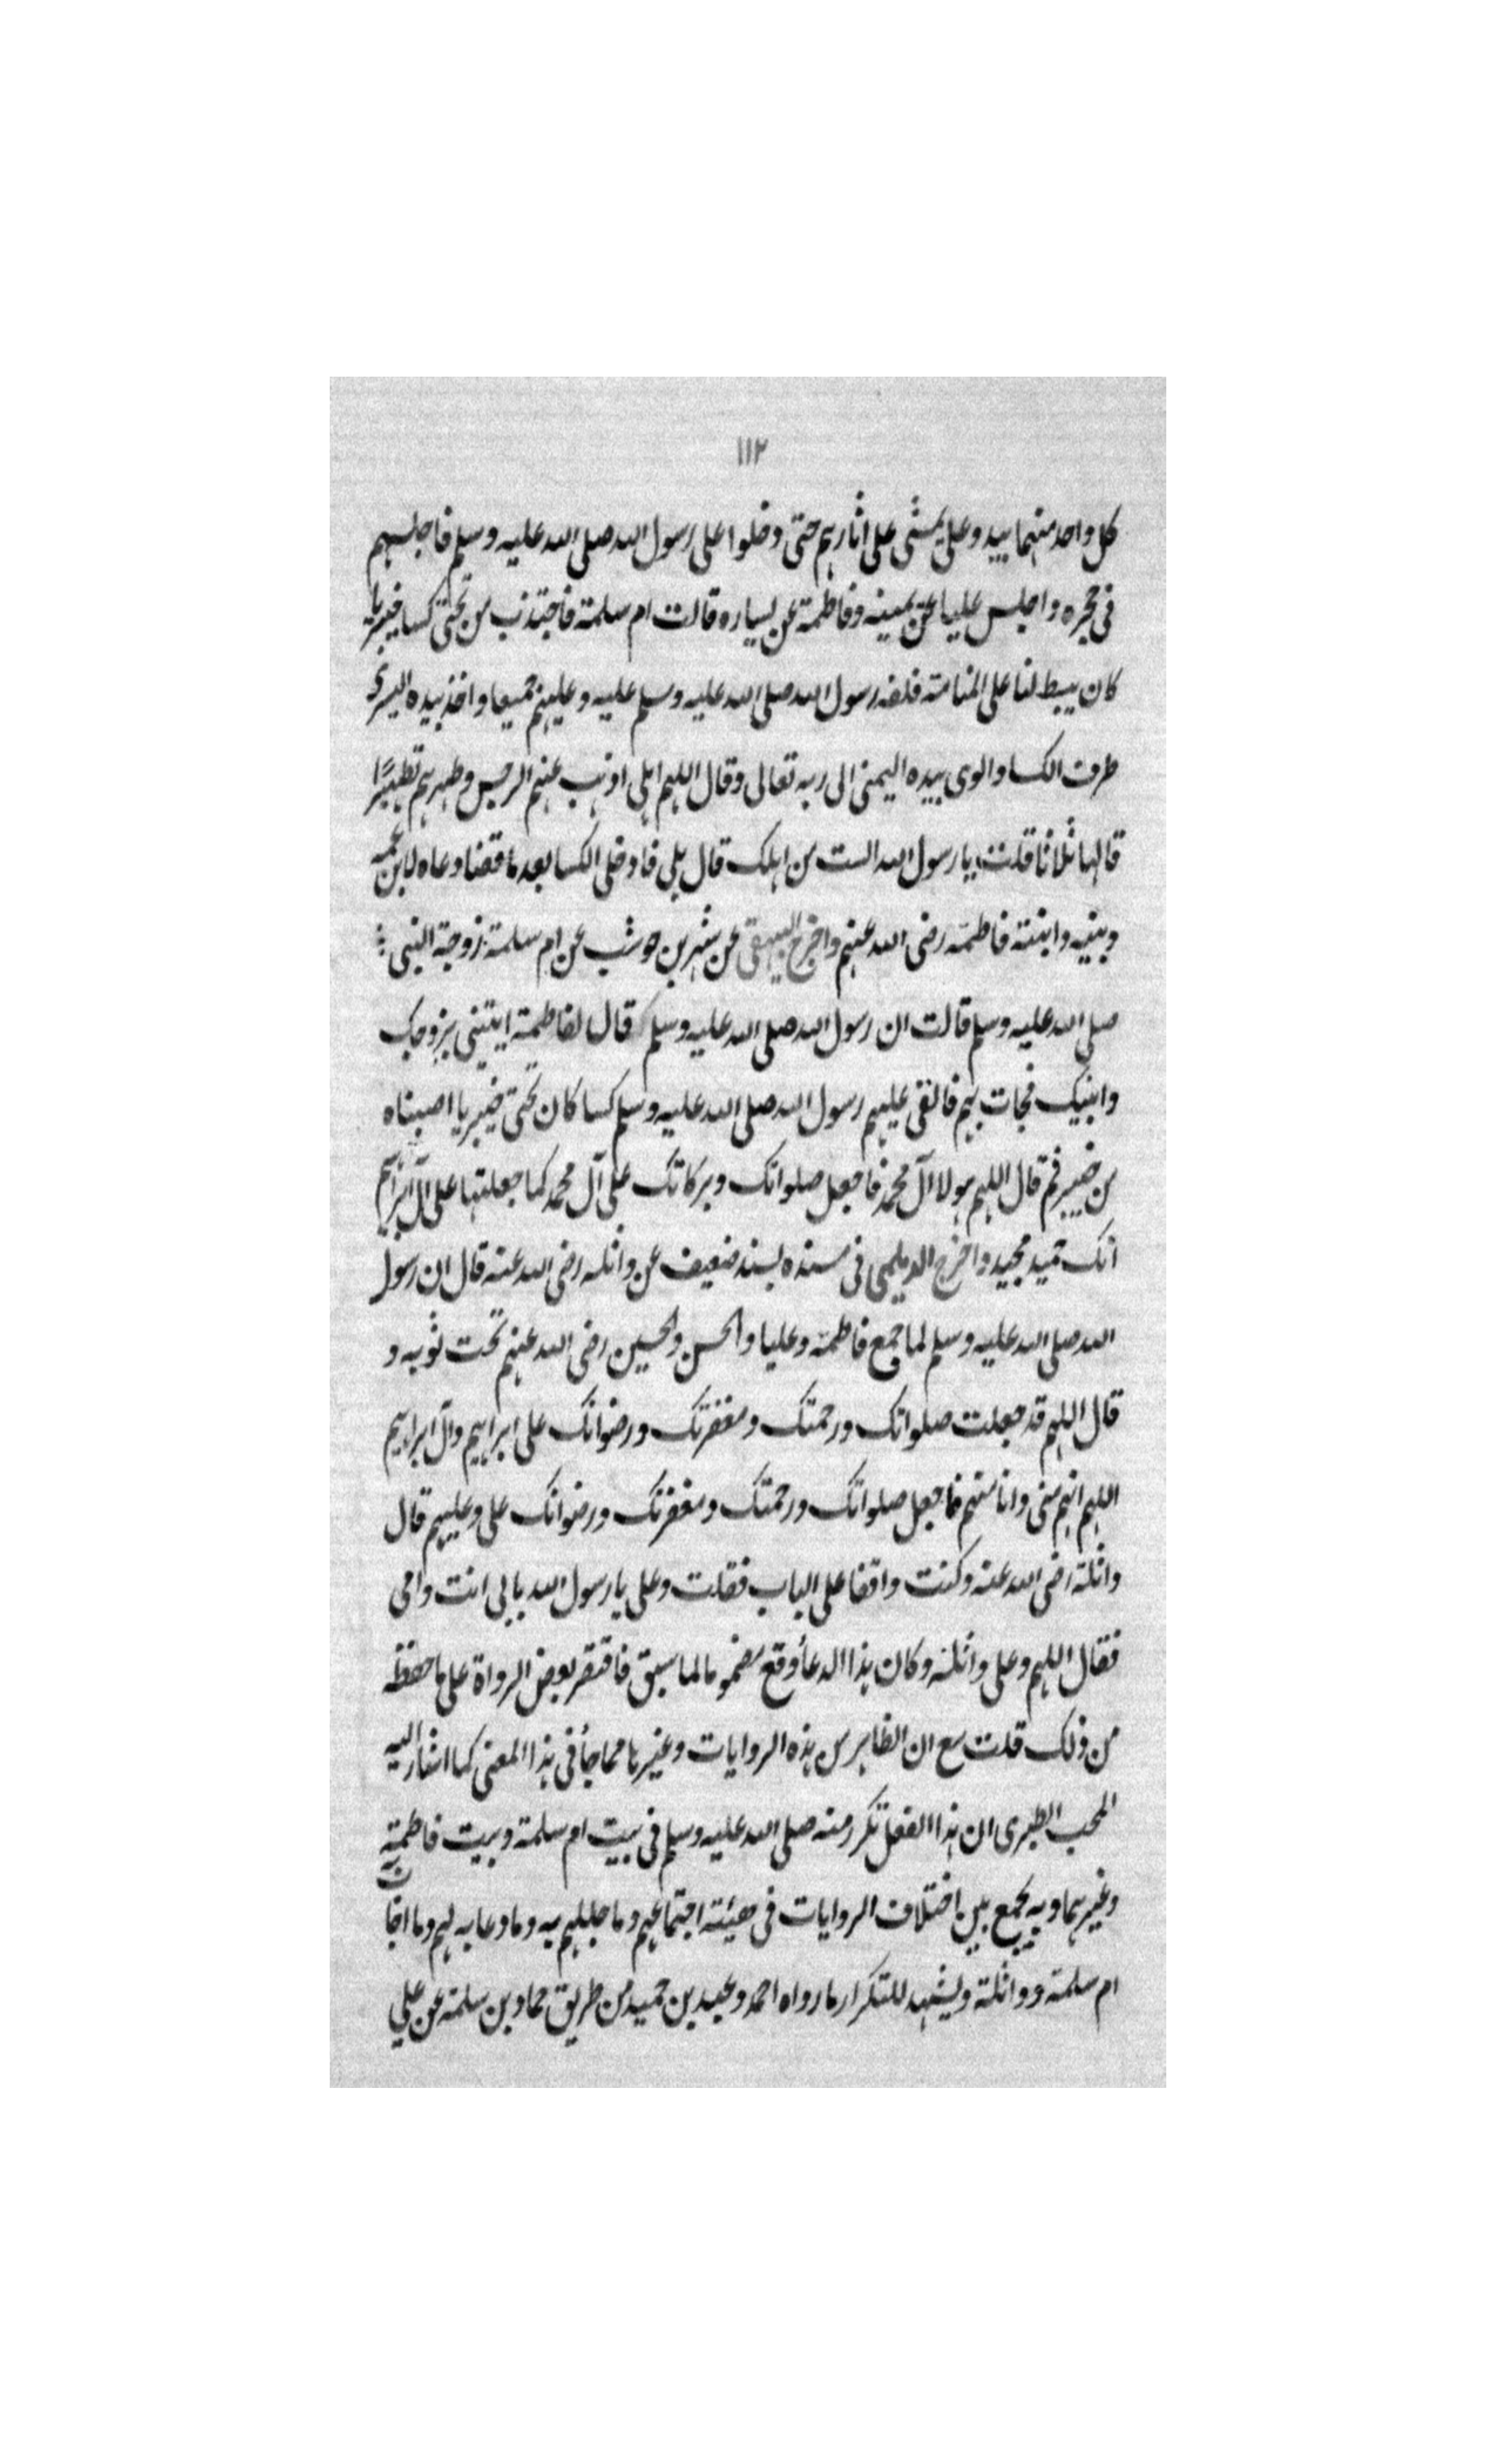 ١١٢
كل واحد منهما بيد وعلي يمشي على اثارهم حتى دخلوا على رسول الله صلى الله عليه وسلم فاجلسهم
في حجره واجلس عليا عن يمينه وفاطمة عن يساره قالت ام سلمة فاجتذب من تحتي كسا خيبريا
كان يبسط لنا على المنامة فلفه رسول الله صلى الله عليه وسلم عليه وعليهم جميعا واخذ بيده اليسرى
طرف الكسا والوى بيده اليمنى الى ربه تعالى وقال اللهم اهلي اذهب عنهم الرجس وطهرهم تطهيرًا
قالها ثلاثا قلت يا رسول الله الست من اهلك قال بلى فادخلي الكسا بعد ما قضا دعاه لابن عمه
وبنيه وابنته فاطمة رضي الله عنهم واخرج البيهقي عن شهر بن حوشب عن ام سلمة زوجة النبي
صلى الله عليه وسلم قالت ان رسول الله صلى الله عليه وسلم قال لفاطمة ايتيني بزوجك
وابنيك فجات بهم فالقى عليهم رسول الله صلى الله عليه وسلم كسا كان تحتي خيبريا اصبناه
من خيبر ثم قال اللهم هولا آل محمد فاجعل صلواتك وبركاتك على آل محمد كما جعلتها على آل ابراهيم
انك حميد مجيد واخرج الديلمي في مسنده بسند ضعيف عن واثله رضي الله عنه قال ان رسول
الله صلى الله عليه وسلم لما جمع فاطمة وعليا والحسن والحسين رضي الله عنهم تحت ثوبه و
قال اللهم قد جعلت صلواتك ورحمتك ومغفرتك ورضوانك على ابراهيم وآل ابراهيم
اللهم انهم مني وانا منهم فاجعل صلواتك ورحمتك ومغفرتك ورضوانك علي وعليهم قال
واثلة رضي الله عنه وكنت واقفا على الباب فقلت وعلي يا رسول الله بابي انت وامي
فقال اللهم وعلى واثلة وكان هذا الدعأ وقع مضموما لما سبق فاقتصر بعض الرواة على ما حفظه
من ذلك قلت مع ان الظاهر من هذه الروايات وغيرها مما جأ في هذا المعنى كما اشار اليه
المحب الطبري ان هذا الفعل تكرر منه صلى الله عليه وسلم في بيت ام سلمة وبيت فاطمة
وغيرهما وبه يجمع بين اختلاف الروايات في هيئة اجتماعهم وما جللهم به وما دعا به لهم وما اجا
ام سلمة وواثلة ويشهد للتكرار ما رواه احمد وعبد بن حميد من طريق حماد بن سلمة عن علي